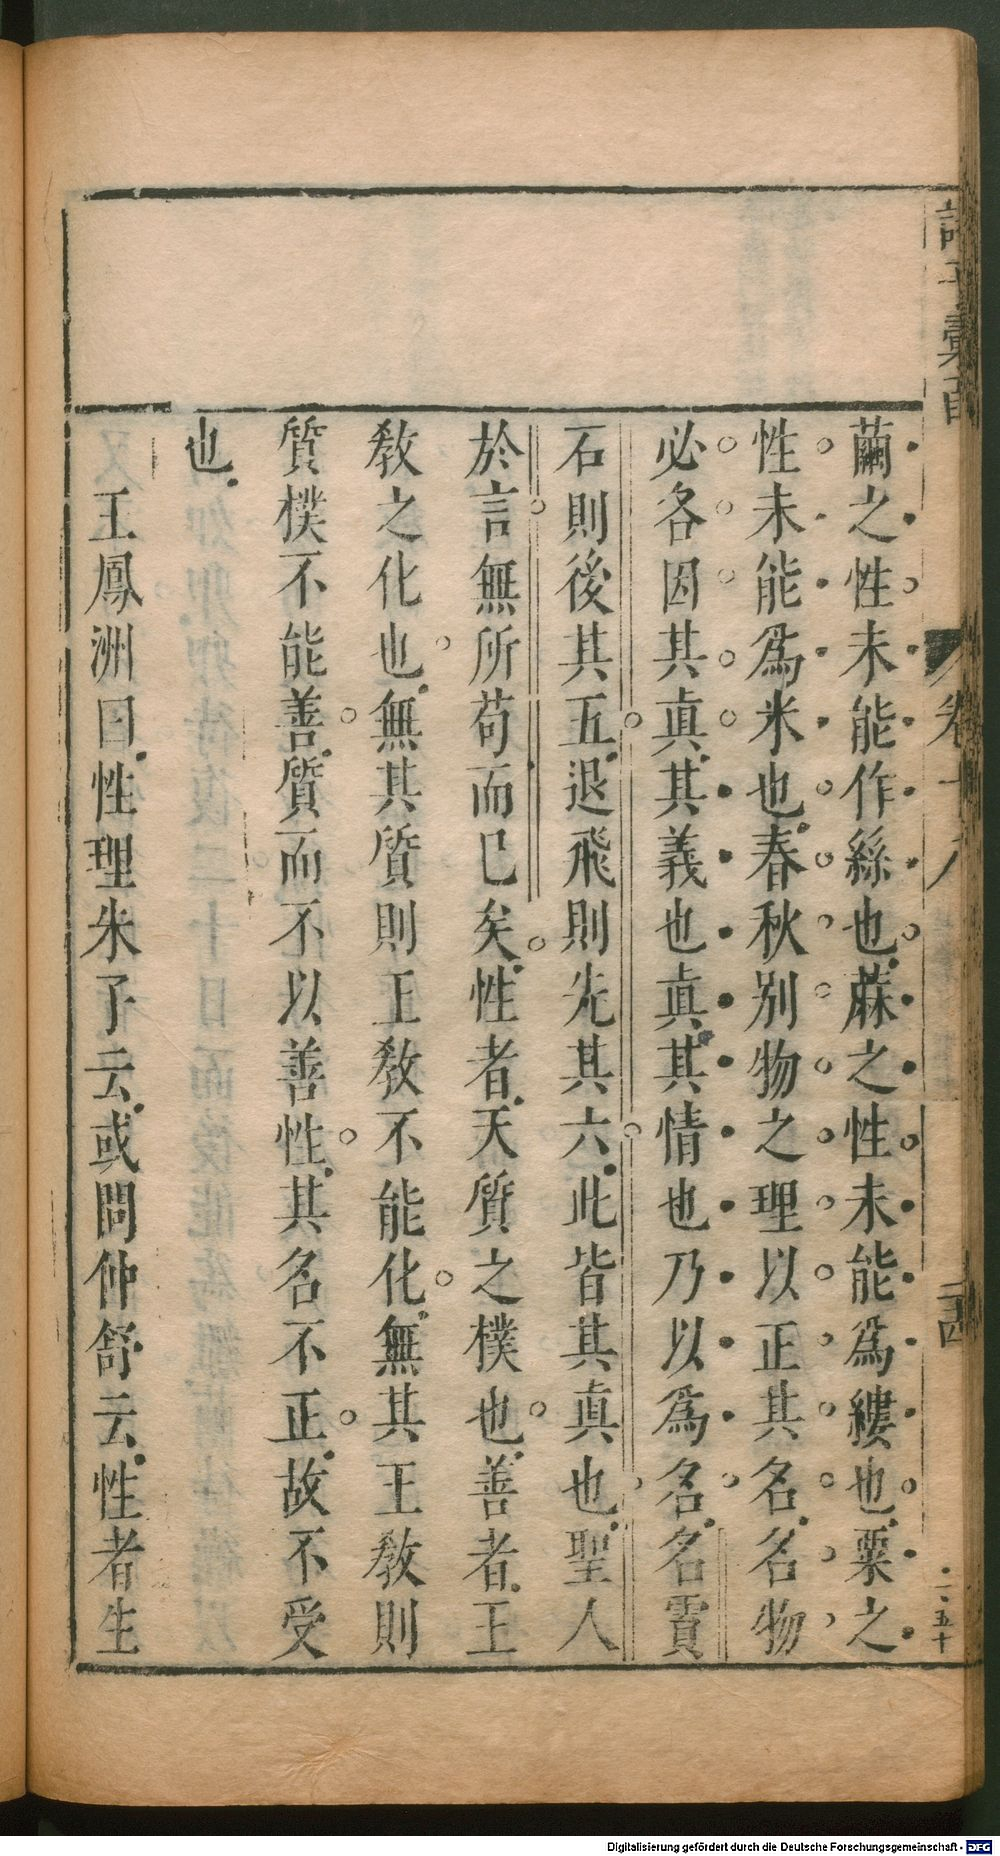 繭之性未能作絲也蔴之性未能爲縷也粟之
性未能爲米也春秋別物之理以正其名名物
必各因其眞其義也眞其情也乃以爲名名霣
石則後其五退飛則先其六此皆其眞也聖人
於言無所苟而已矣性者天質之樸也善者王
教之化也無其質則王教不能化無其王教則
質樸不能善質而不以善性其名不正故不受
也
王鳳洲曰性理朱子云或問仲舒云性者生
卷十八
二十四
一五十
Digitalisierung gefördert durch die Deutsche Forschungsgemeinschaft - DFG